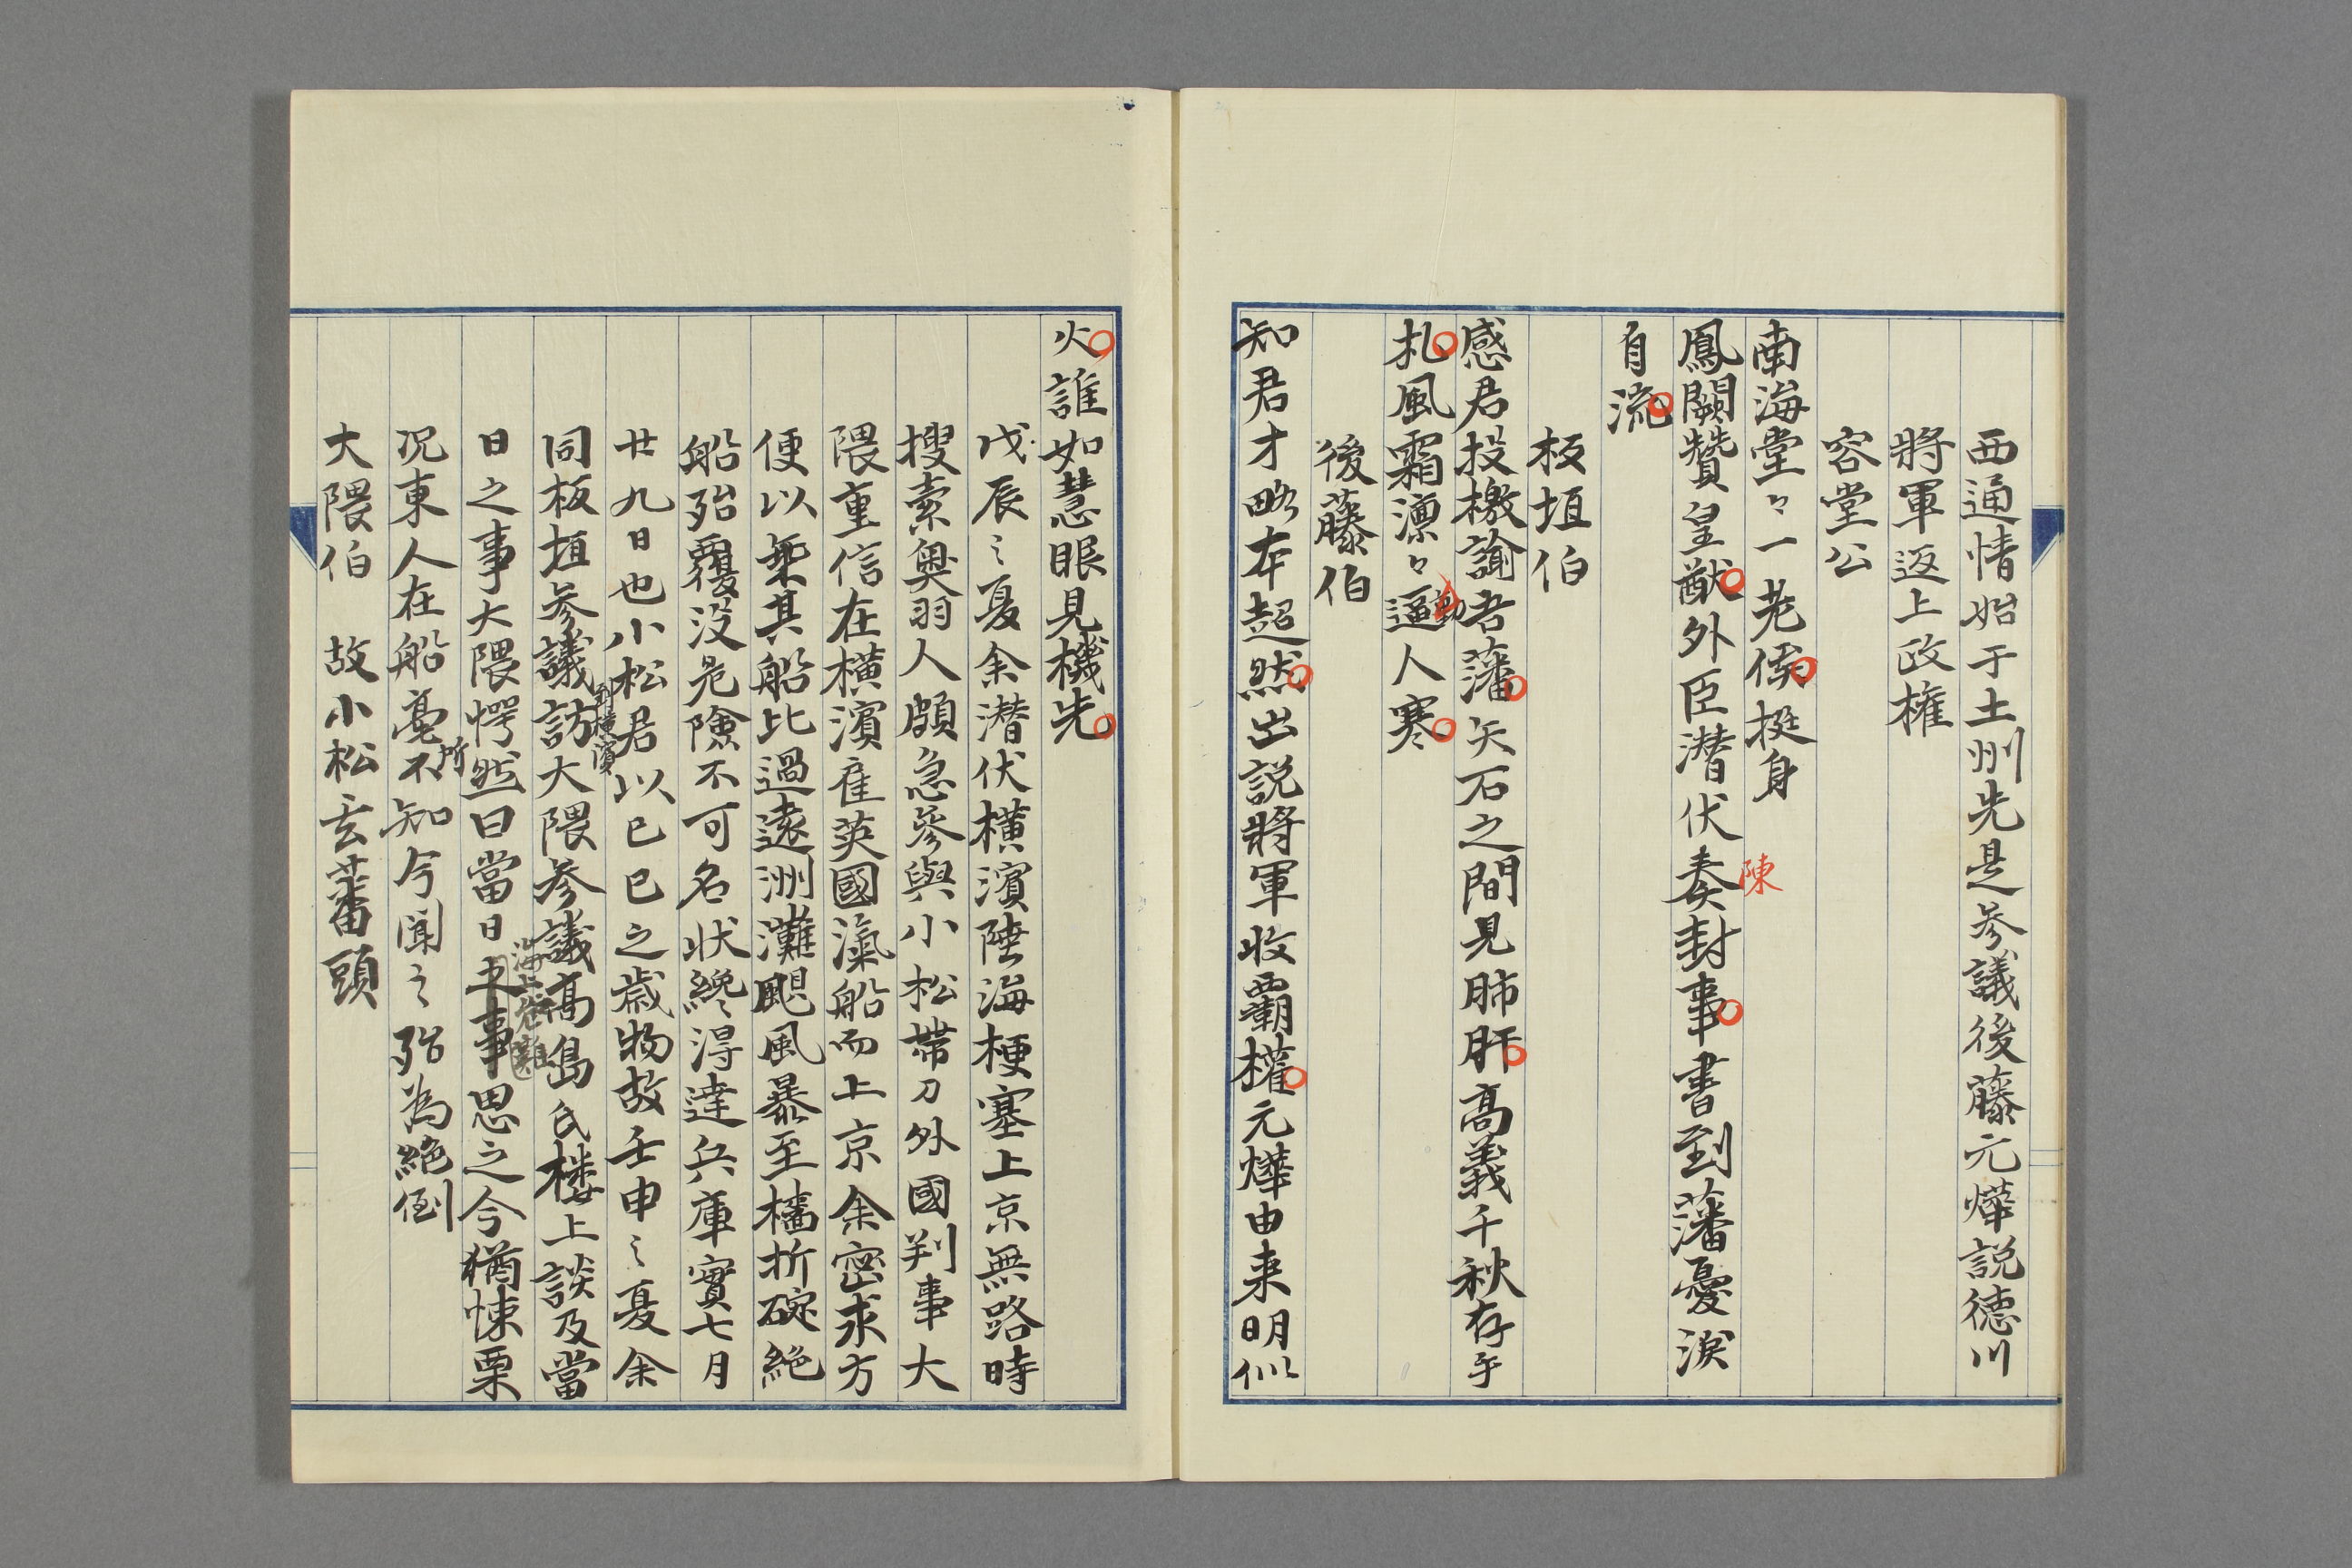 西通情始于土州先是参議後藤元燁説徳川
將軍返上政権
容堂公
南海堂々一老侯挺身
鳳闕贊皇猷外臣潜伏奏封事書到藩憂淚
陳
自流
板垣伯
感君投檄諭吾藩矢石之間見肺肝高義千秋存手
札風霜凛々逼人寒
後藤伯
知君才略本超然出説將軍收覇權元燁由来明似
火誰如慧眼見機先
戊辰之夏余潜伏横濱陸海梗塞上京無路時
搜索奥羽人頗急參與小松帶刀外國判事大
隈重信在横濱雇英國滊船而上京余密求方
便以乗其船比過遠洲灘颶風暴至檣折碇絶
船殆覆没危險不可名状纔得達兵庫實七月
廿九日也小松君以已巳之歳物故壬申之夏余
到横濱
同板垣参議訪大隈参議高島氏楼上談及當
海上危難
日之事大隈愕然曰當日之事思之今猶悚栗
所
况東人在船毫不知今聞之殆為絶倒
大隈伯　故小松玄蕃頭